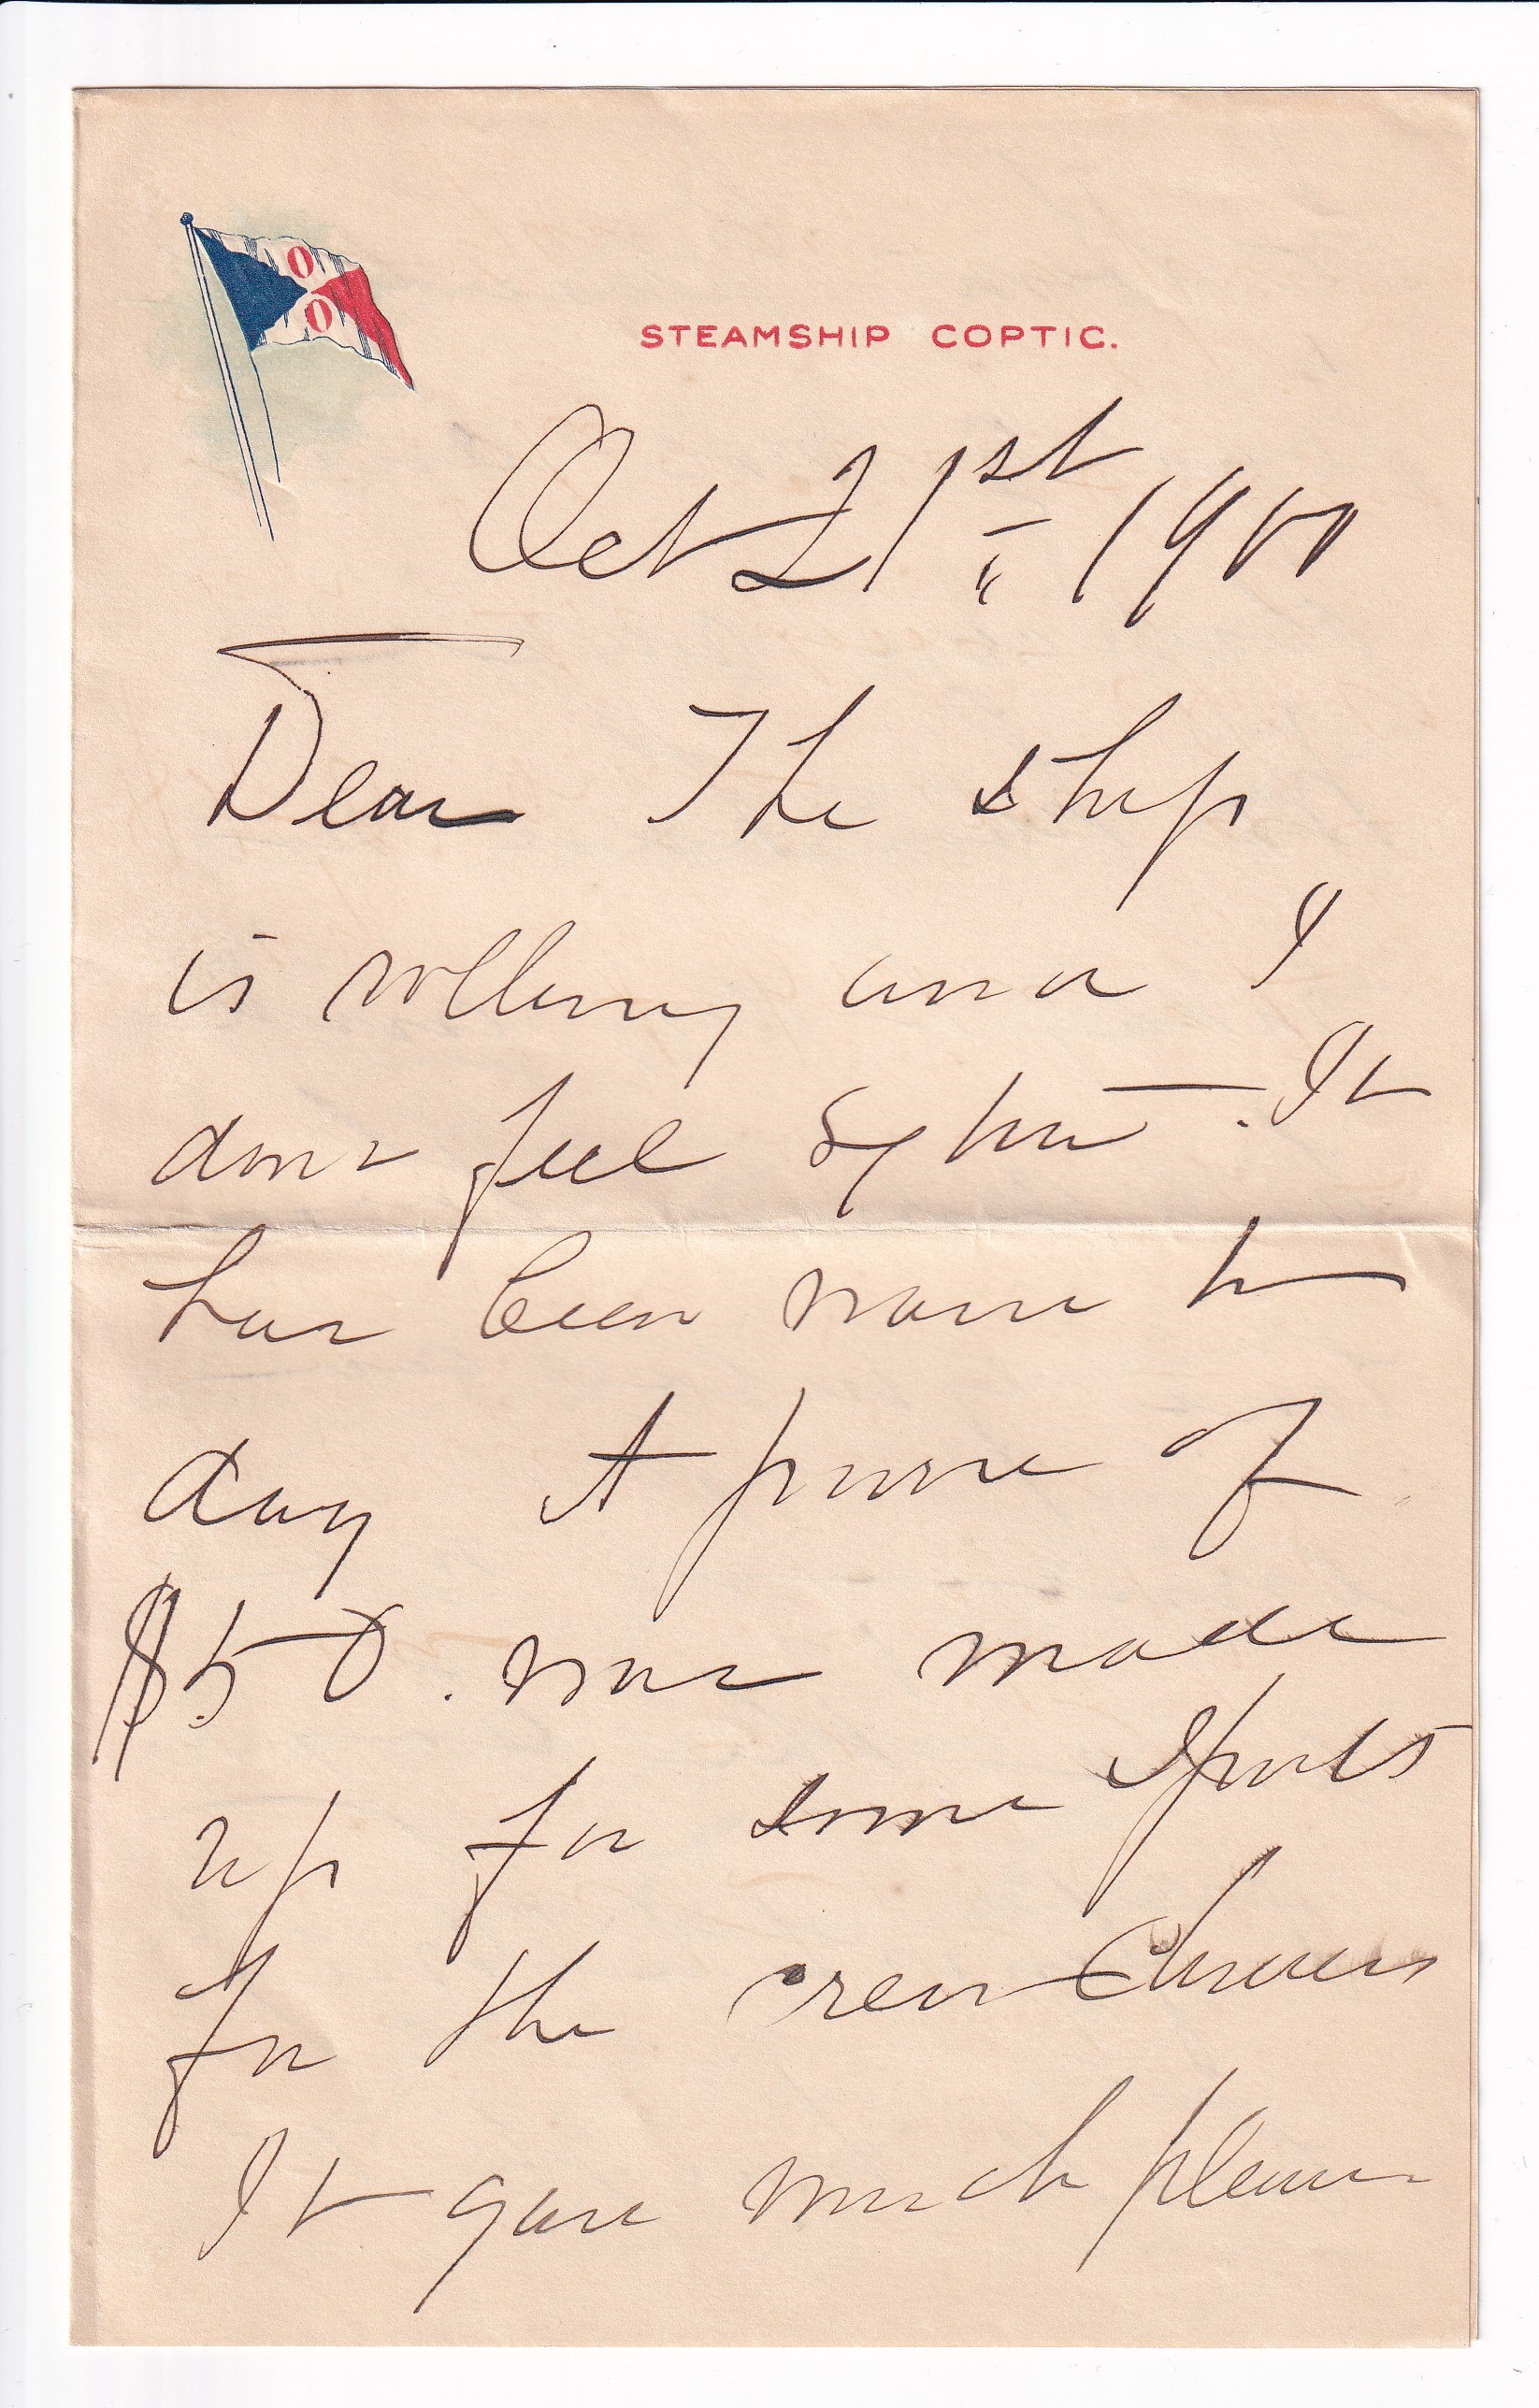 O
O
STEAMSHIP COPTIC.
Oct 21st 1900
Dear The ship
is rolling and I
dont feel right. It
has been warm to
day A purse of
$50. was made
up for some sports
for the crew
It gave much pleasure